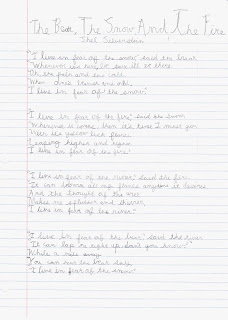 The Bear, The Snow And The Fire
Shel Silverstein
"I live in fear of the snow," said the bear
"Whenever it's here, be sure I'll be there.
Oh, the pain and the cold,
When one's bearish and old,
I live in fear of the snow."
"I live in fear of the fire," said the snow
"Whenever it comes then it's time I must go.
With its yellow lick flames
Leaping higher and higher
I live in fear of the fire."
"I live in fear of the river," said the fire
"It can drown all my flames anytime it desires
And the thought of the wet
Makes me sputter and shiver,
I live in fear of the river."
"I live in fear of the bear," said the river
"It can lap me right up don't you know"
While a mile away
You can hear the bear say
I live in fear of the snow